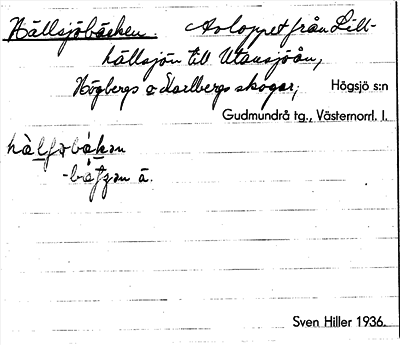 Hällsjöbäcken. Avloppet från Lill-
hällsjön till Utansjöån,
Högbergs o Karlbergs skogar; Högsjö s:n
Gudmundrå tg., Västernorrl. l.
Sven Hiller 1936.